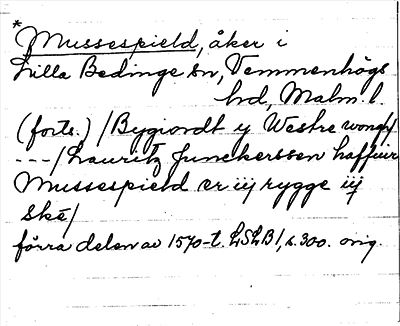 *Mussespield, åker i
Lilla Bedinge sn, Vemmenhögs
hrd, Malm. l.
(forts.) /Bygiordt y Westre wong/
---/Lauritz Junckerssen haffuir
Mussespield er iij rygge iij
ské/
förra delen av 1570-t. LSLB1, s. 300. orig.